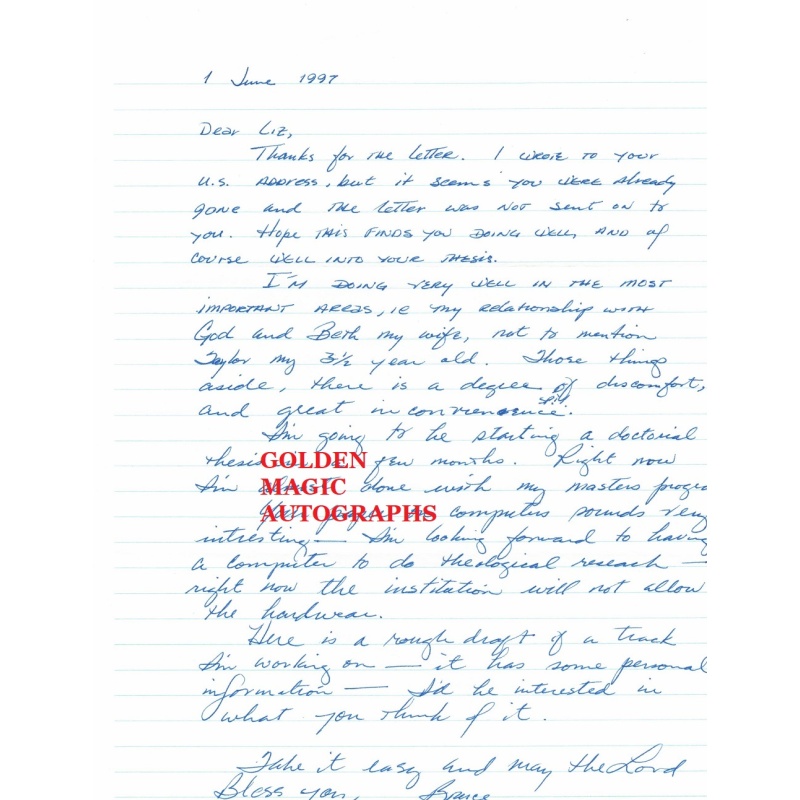 1 June 1997
Dear Liz,
Thanks for the letter. I wrote to your
U.S. Address, but it seems you were already
gone and the letter was not sent on to
you. Hope this finds you doing well, and of
course well into your thesis.
I'm doing very well in the most
important areas, ie my relationship with
God and Beth my wife, not to mention
Taylor my 3½ year old. Those things
aside, there is a degree of discomfort,
and great inconvrenence sp.
I'm going to be starting a doctorial
thesis in a few months. Right now
I'm almost done with my masters progra
Your paper on computers sounds very
intresting — I'm looking forward to having
a computer to do theological reseach —
right now the institution will not allow
the hardwear.
Here is a rough draft of a track
I'm working on — it has some personal
information — I'd be interested in
what you think of it.
Take it easy and may the Lord
Bless you, Bruce
GOLDEN
MAGIC
AUTOGRAPHS